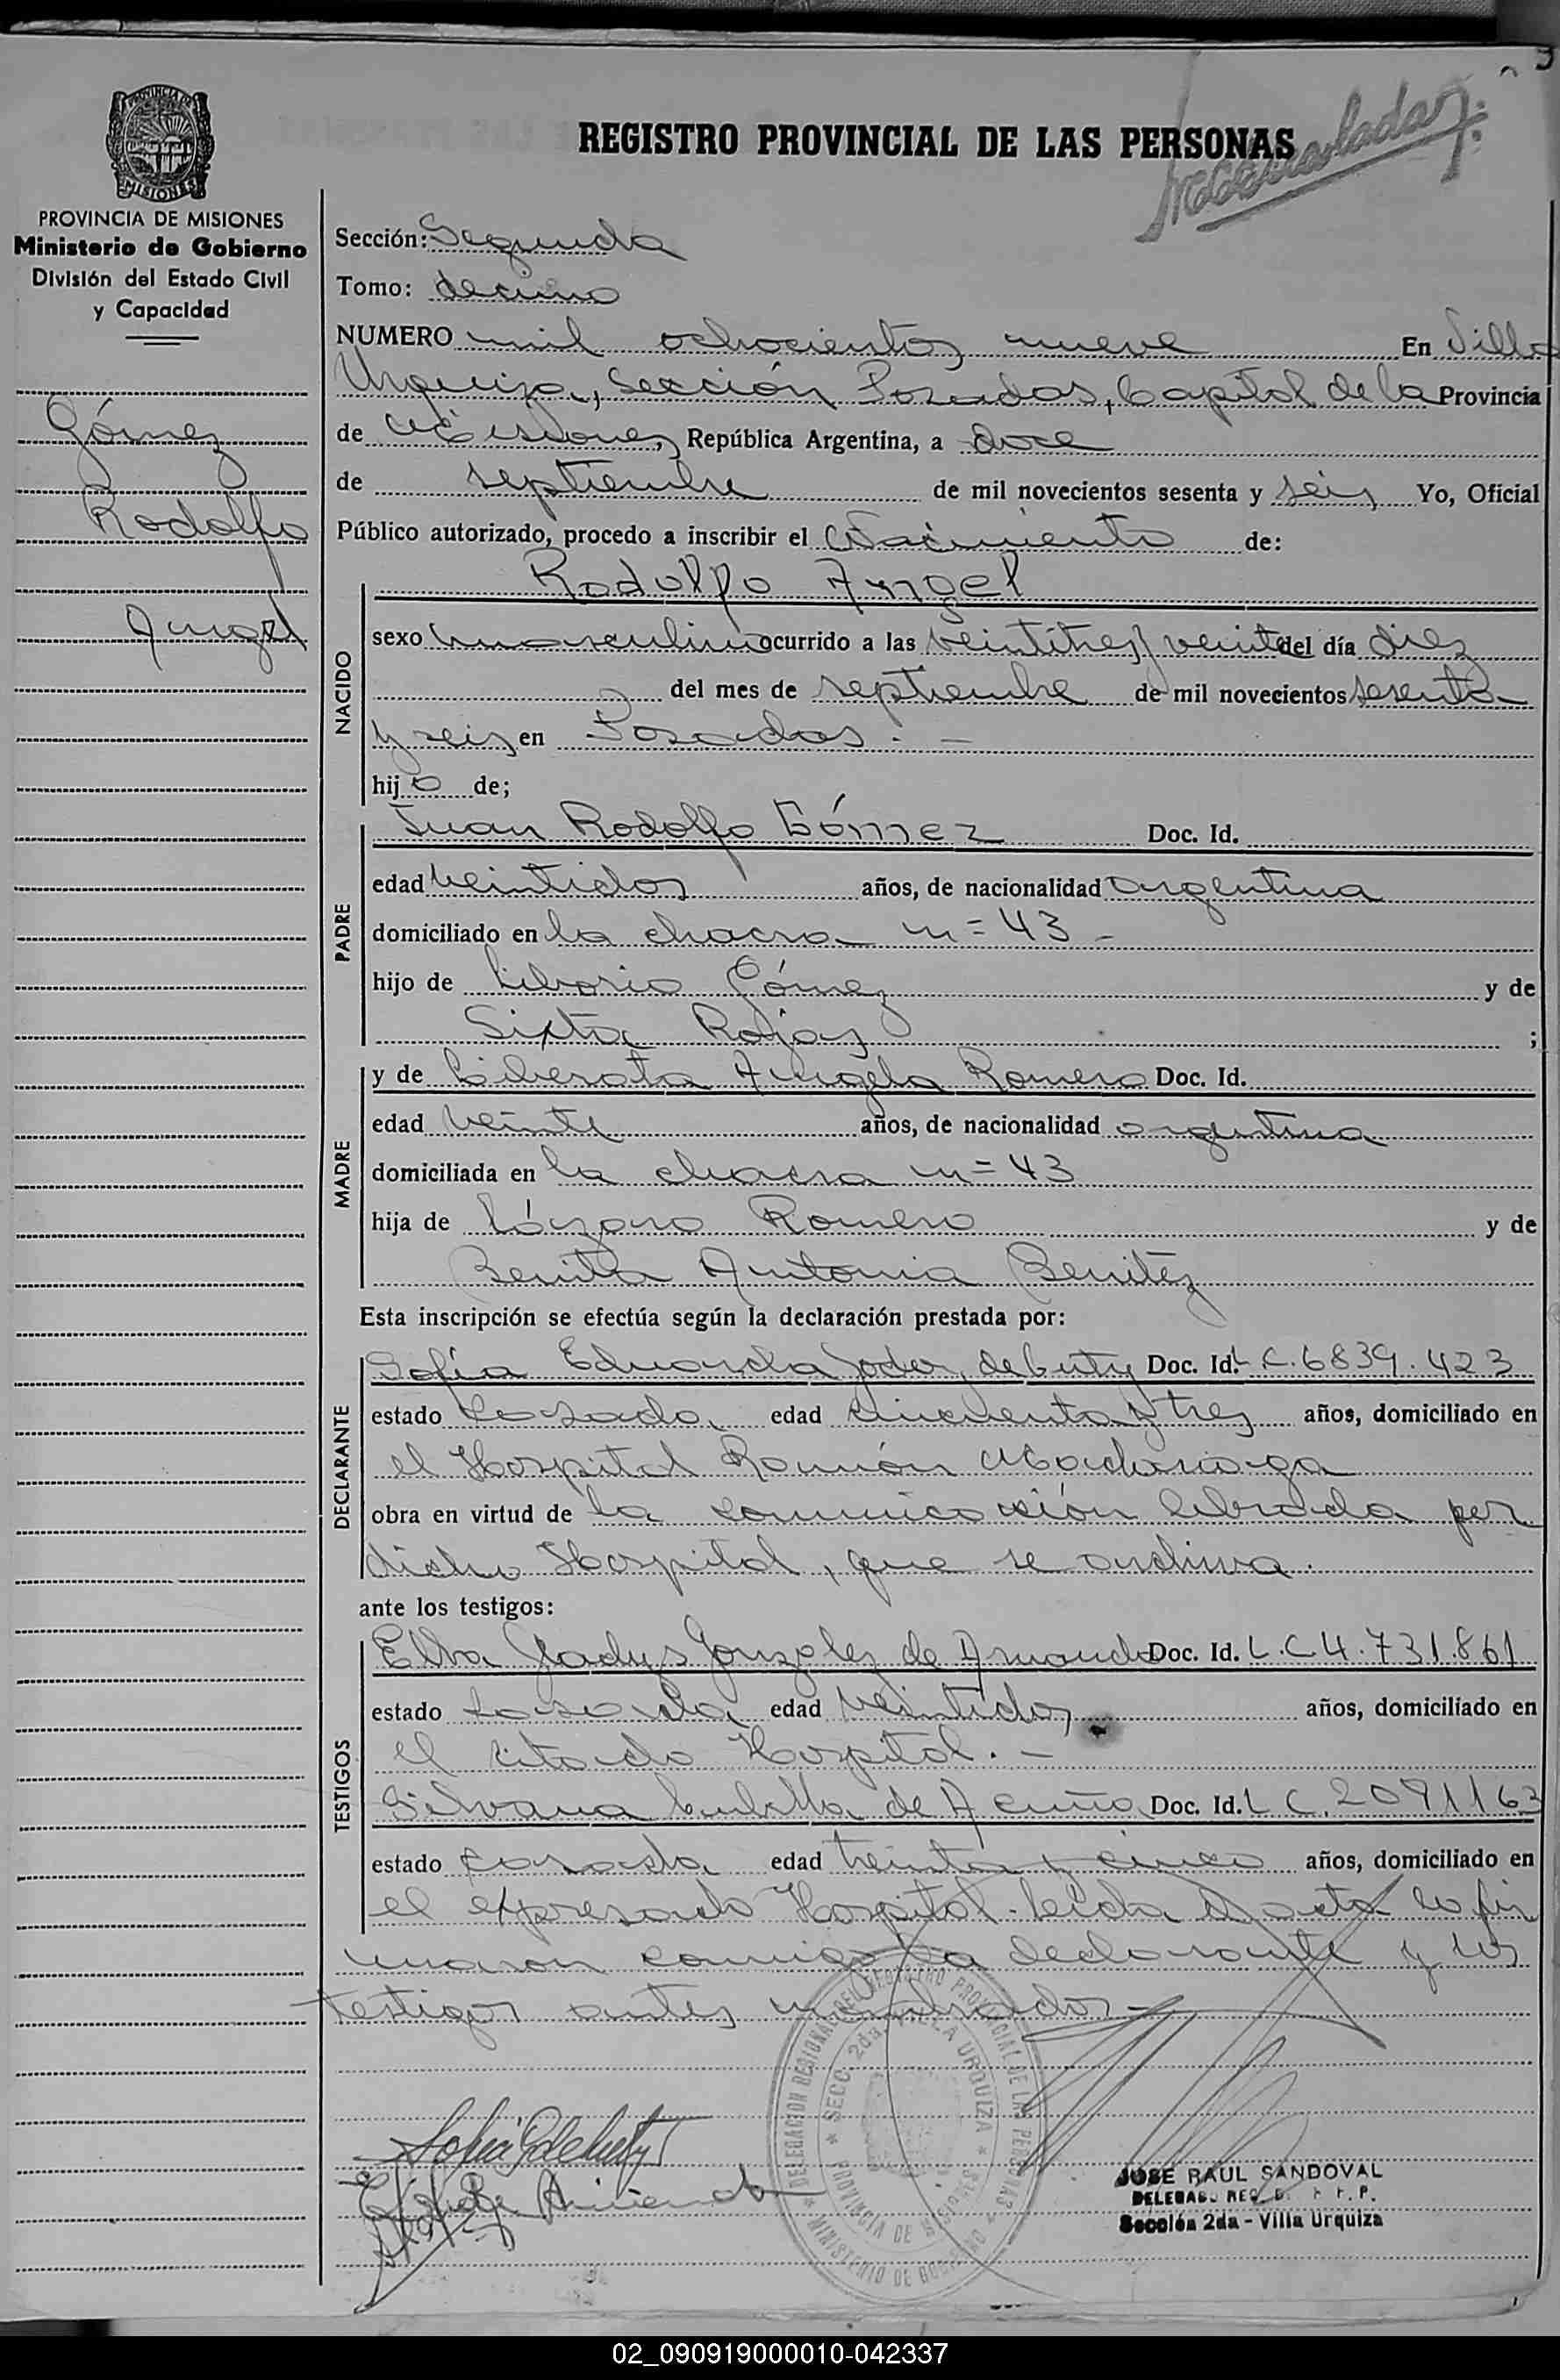 REGISTRO PROVINCIAL DE LAS PERSONAS
PROVINCIA DE MISIONES
Ministerio de Gobierno
División del Estado Civil
y Capacidad
Gómez
Rodolfo
Angel
Sección: Segunda
Tomo: decimo
NUMERO mil ochocientos nueve En Villa
Urquiza, Sección Posadas, Capital de la Provincia
de Misiones, República Argentina, a doce
de septiembre de mil novecientos sesenta y seis Yo, Oficial
Público autorizado, procedo a inscribir el Nacimiento de:
NACIDO
Rodolfo Angel
sexo masculino ocurrido a las veintitres y veinte del día diez
del mes de septiembre de mil novecientos sesenta
y seis en Posadas.-
hijo de;
PADRE
Juan Rodolfo Gómez Doc. Id.
edad veintidos años, de nacionalidad argentina
domiciliado en la chacra n= 43 -
hijo de Liborio Gómez y de
Sixta Rojas ;
MADRE
y de Liberata Angela Romero Doc. Id.
edad veinte años, de nacionalidad argentina
domiciliada en la chacra n= 43
hija de Lázaro Romero y de
Benita Antonia Benitez
Esta inscripción se efectúa según la declaración prestada por:
DECLARANTE
Sofía Eduarda de Doc. Id. L.C. 6839.423
estado casada, edad cincuenta y tres años, domiciliado en
el Hospital Ramón Madariaga
obra en virtud de la comunicación librada por
dicho Hospital, que se archiva.
ante los testigos:
TESTIGOS
Elba Gladys Gonzalez de Doc. Id. L.C 4.731.861
estado casada edad veintidos años, domiciliado en
el citado Hospital.-
Silvana de Acuña Doc. Id. L C. 2091163
estado casada edad treinta y cinco años, domiciliado en
el expresado Hospital. Leída el acta la fir
maron conmigo la declarante y los
testigos antes nombrados-
DELEGACION REGIONAL DEL REGISTRO PROVINCIAL DE LAS PERSONAS
MINISTERIO DE GOBIERNO
SECC. 2da. VILLA URQUIZA
PROVINCIA DE MISIONES
JOSE RAUL SANDOVAL
Sección 2da - Villa Urquiza
02_090919000010-042337